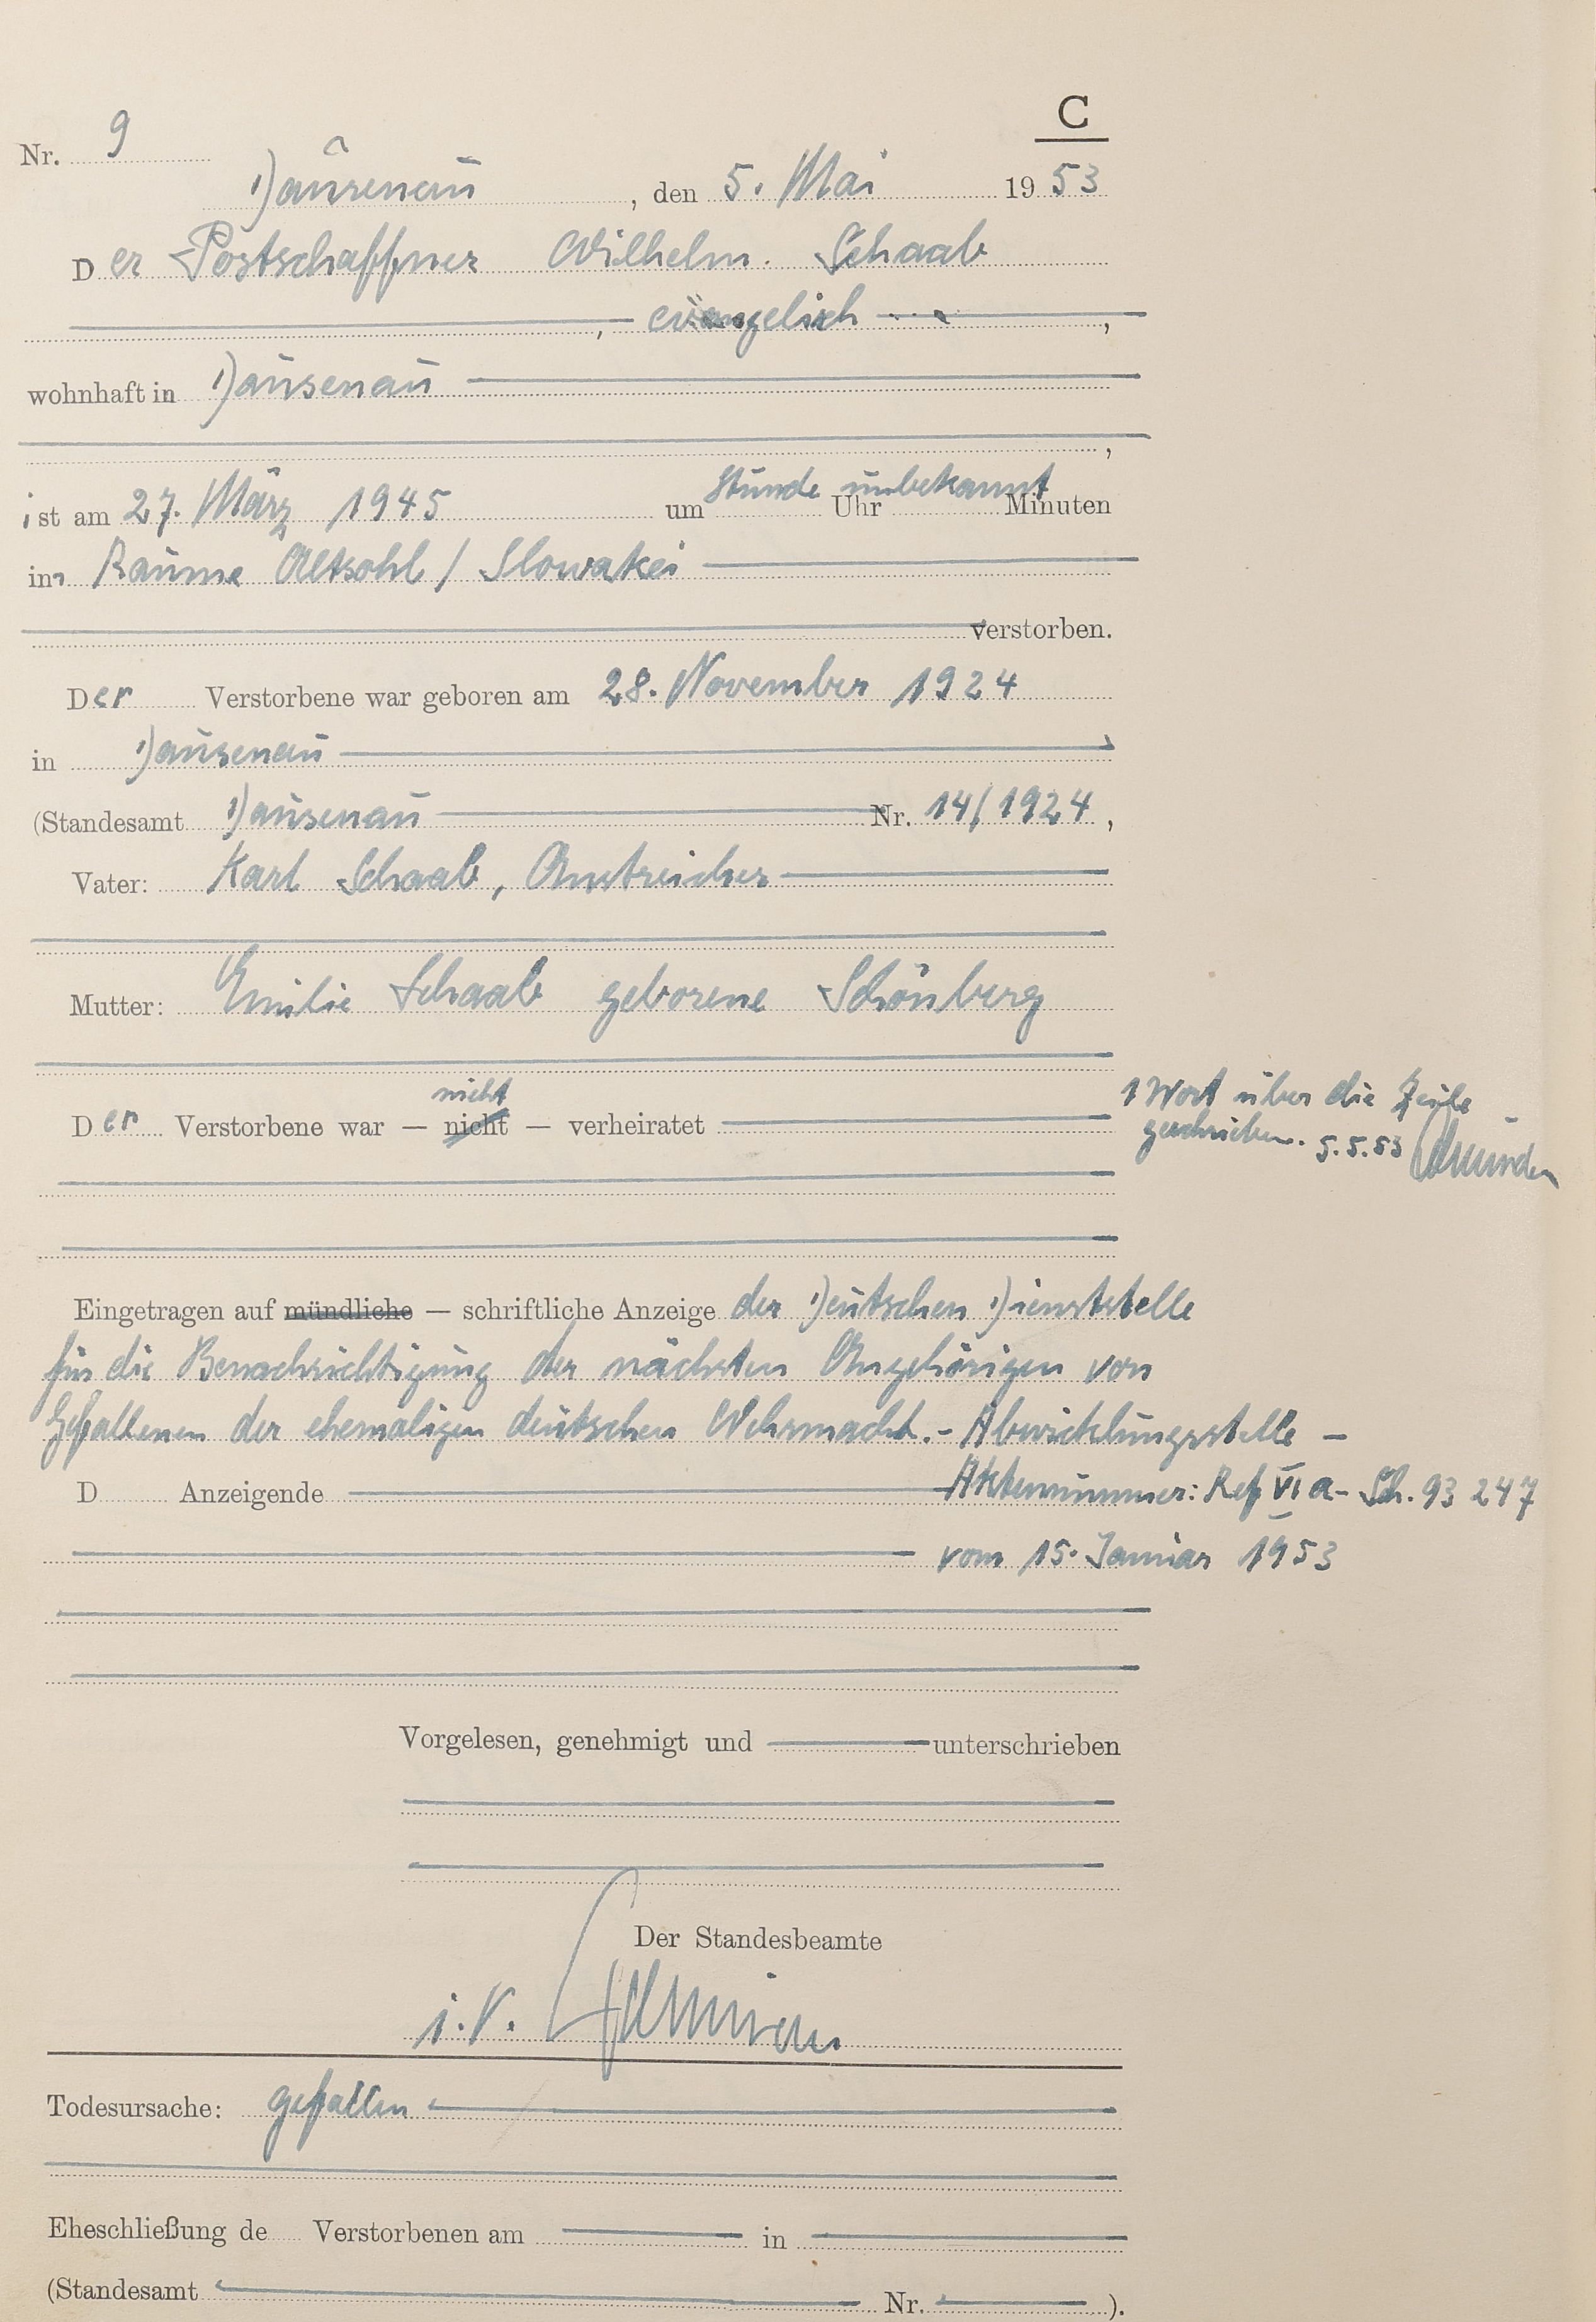 C
Nr. 9
Dausenau, den 5. Mai 1953
Der Postschaffner Wilhelm Schaab
, evangelisch,
wohnhaft in Dausenau
,
ist am 27. März 1945 um Stunde unbekannt Uhr Minuten
im Raume Altsohl / Slowakei
verstorben.
Der Verstorbene war geboren am 28. November 1924
in Dausenau
(Standesamt Dausenau Nr. 14/1924,
Vater: Karl Schaab, Anstreicher
Mutter: Emilie Schaab geborene Schönberg
nicht
Der Verstorbene war — nicht — verheiratet
1 Wort über die Zeile
geschrieben. 5.5.53
Eingetragen auf mündliche — schriftliche Anzeige der Deutschen Dienststelle
für die Benachrichtigung der nächsten Angehörigen von
Gefallenen der ehemaligen deutschen Wehrmacht.- Abwicklungsstelle -
D Anzeigende Aktennummer: Ref VI a - Sch. 93 247
vom 15. Januar 1953
Vorgelesen, genehmigt und unterschrieben
Der Standesbeamte
i.V.
Todesursache: gefallen
Eheschließung de Verstorbenen am in
(Standesamt Nr. ).